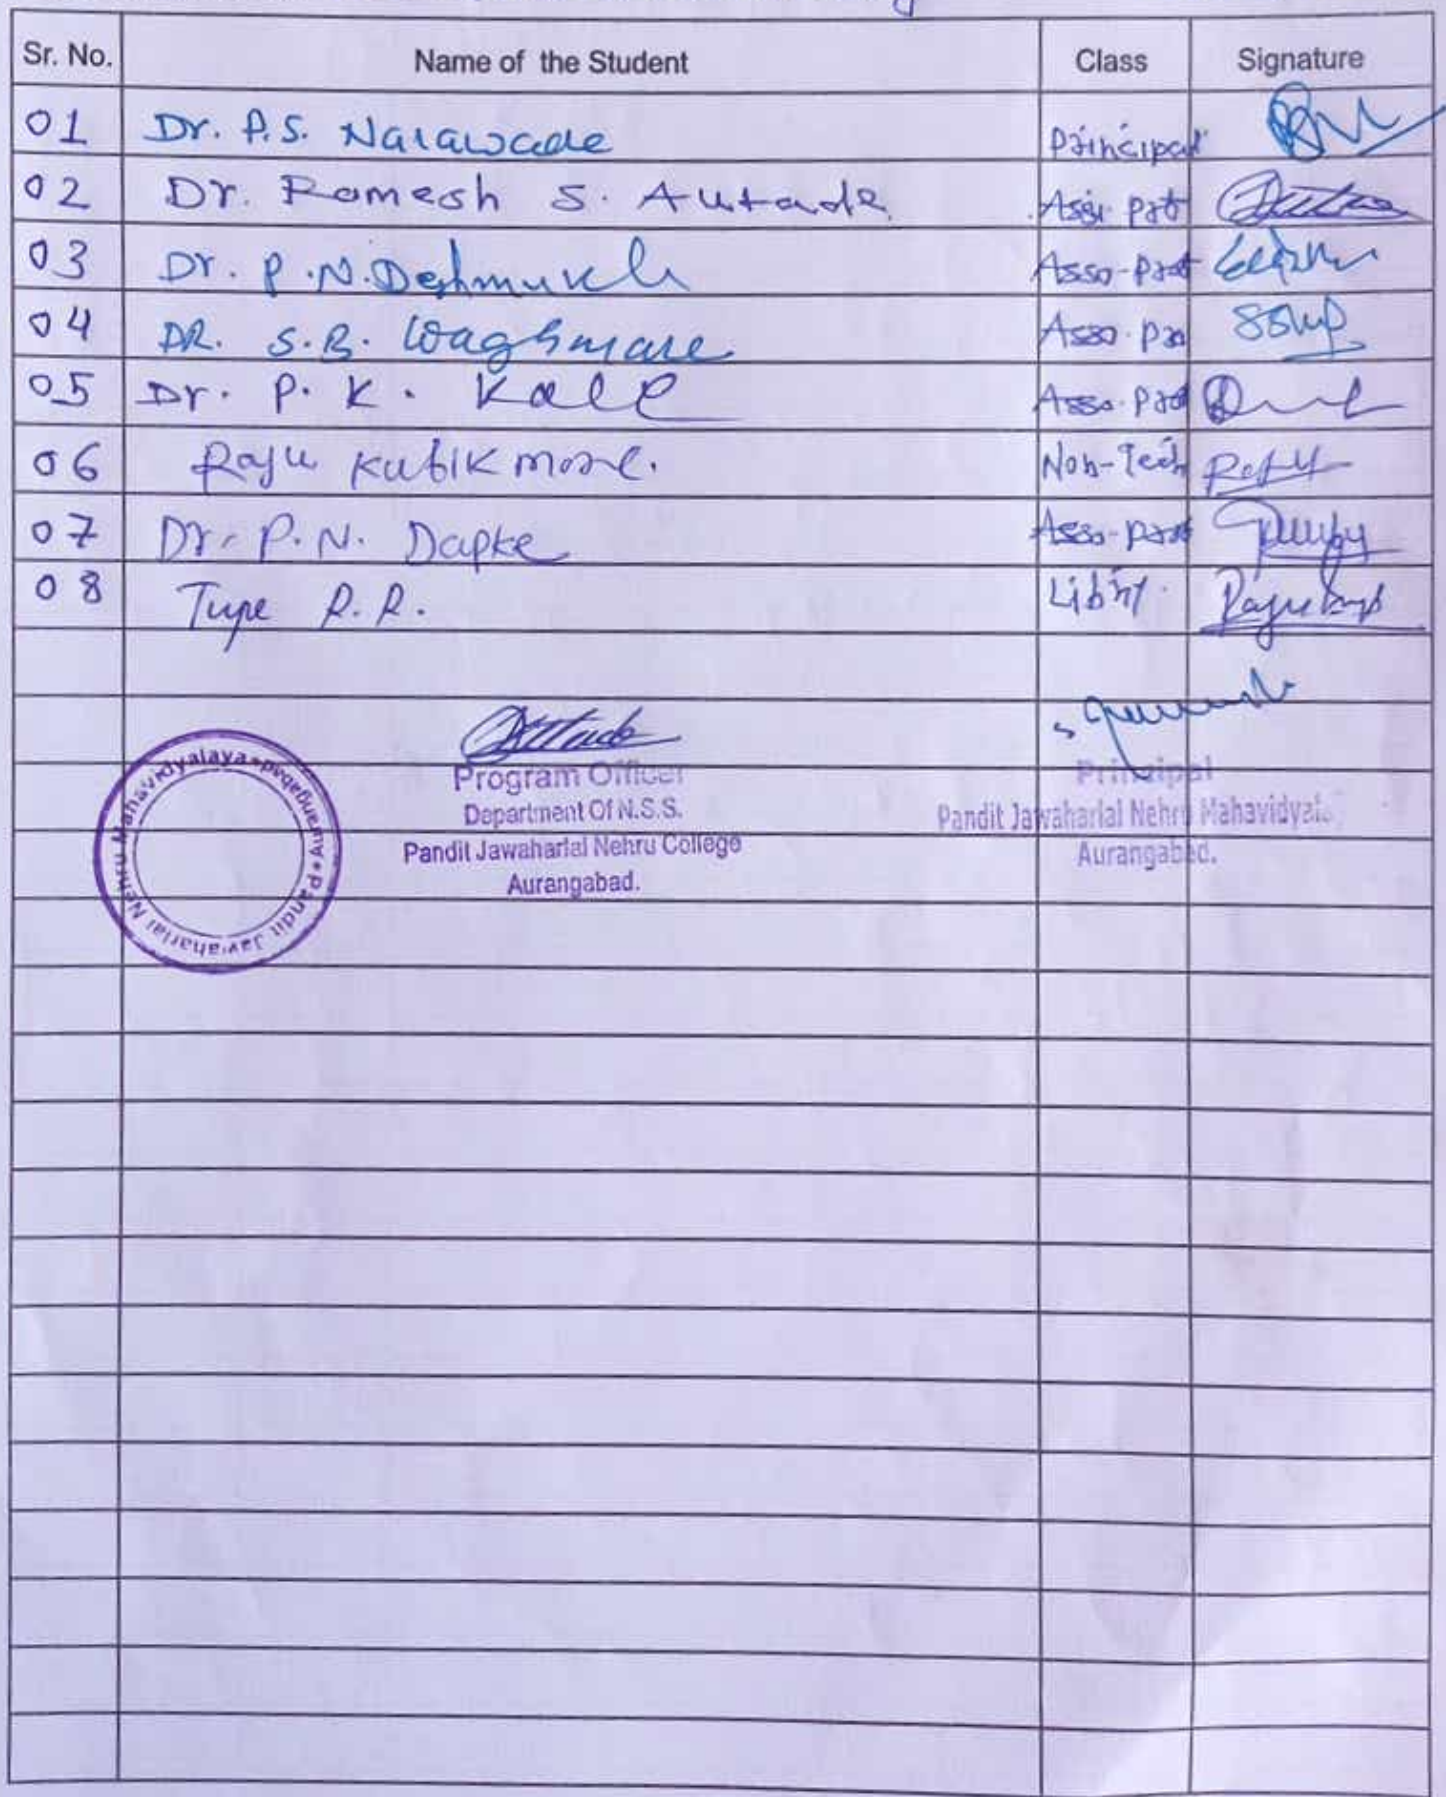 Sr. No. Name of the Student Class Signature
01 Dr. P.S. Narawade Principal
02 Dr. Ramesh S. Autade Assi. prof
03 Dr. P.N. Deshmukh Asso-prof
04 DR. S.B. Waghmare Asso. pro
05 Dr. P.K. Kale Asso. prof
06 Raju Kubik more. Non-Tech
07 Dr. P.N. Dapke Asso-prof
08 Tupe R.R.
Program Officer
Department Of N.S.S.
Pandit Jawaharlal Nehru College
Aurangabad.
Principal
Pandit Jawaharlal Nehru Mahavidyala
Aurangabad.
Pandit Jawaharlal Nehru Mahavidyalaya * Aurangabad *